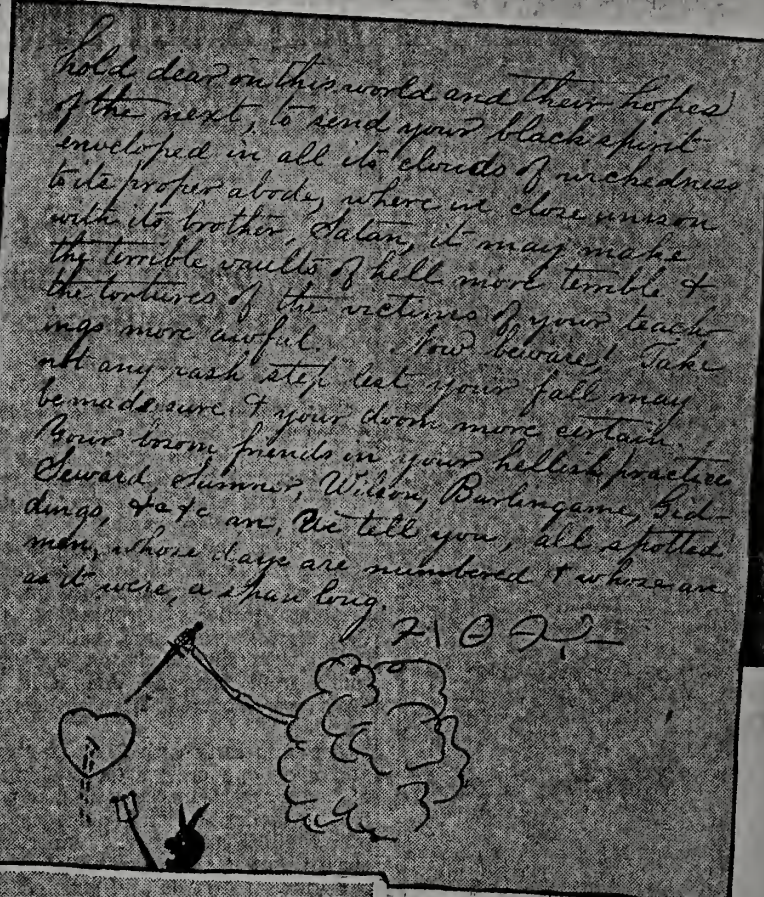 hold dear on this world and their hopes
of the next, to send your black spirit
enveloped in all its clouds of wickedness
to its proper abode, where in close unison
with its brother, Satan, it may make
the terrible vaults of hell more terrible &
the tortures of the victims of your teach-
ings more awful. Now beware! Take
not any rash step lest your fall may
be made sure & your doom more certain.
Your bosom friends in your hellish practices
Seward, Sumner, Wilson, Burlingame, Gid-
dings, &c &c , We tell you, all spotted
men, whose days are numbered & whose are
as it were, a span long.